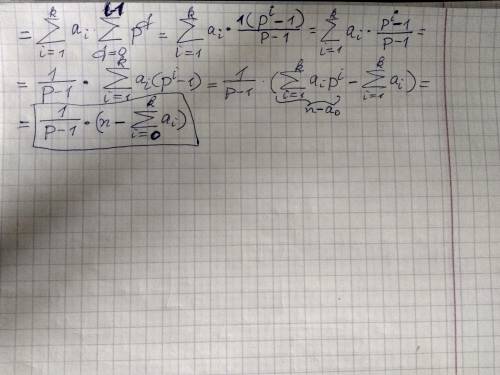 = \sum_{i=1}^{k} a_i \sum_{j=0}^{i-1} p^j = \sum_{i=1}^{k} a_i \cdot \frac{1(p^i-1)}{p-1} = \sum_{i=1}^{k} a_i \cdot \frac{p^i-1}{p-1} =
= \frac{1}{p-1} \cdot \sum_{i=1}^{k} a_i(p^i-1) = \frac{1}{p-1} \cdot (\underbrace{\sum_{i=1}^{k} a_i p^i}_{n-a_0} - \sum_{i=1}^{k} a_i) =
= \frac{1}{p-1} \cdot (n - \sum_{i=0}^{k} a_i)